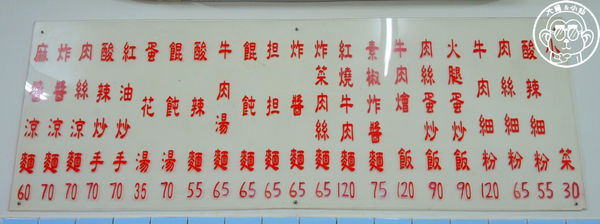 麻醬涼麵 60
炸醬涼麵 70
肉絲涼麵 70
酸辣炒手 70
紅油炒手 70
蛋花湯 35
餛飩湯 70
酸辣麵 55
牛肉湯麵 65
餛飩麵 65
担担麵 65
炸醬麵 65
炸菜肉絲麵 65
紅燒牛肉麵 120
素椒炸醬麵 75
牛肉燴飯 120
肉絲蛋炒飯 90
火腿蛋炒飯 90
牛肉細粉 120
肉絲細粉 65
酸辣細粉 55
菜 30